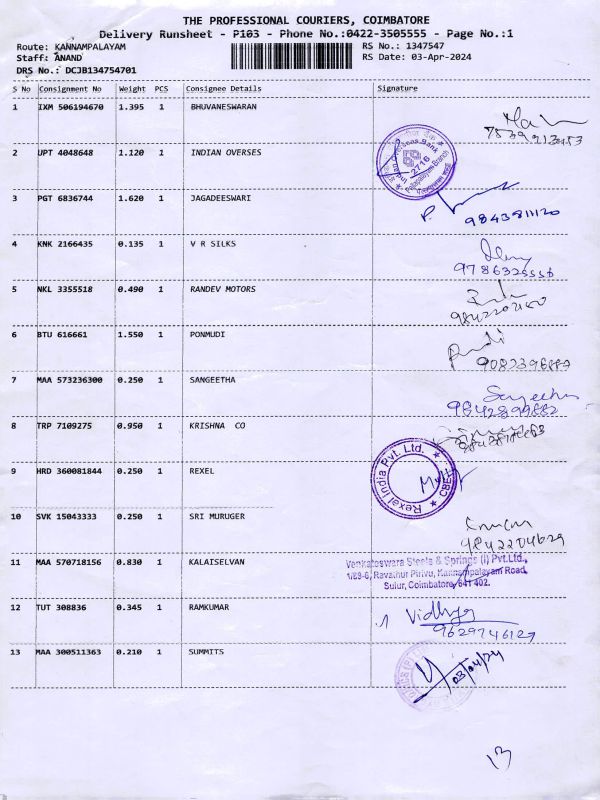 THE PROFESSIONAL COURIERS, COIMBATORE
Delivery Runsheet - P103 - Phone No.:0422-3505555 - Page No.:1
Route: KANNAMPALAYAM
RS No.: 1347547
Staff: ANAND
RS Date: 03-Apr-2024
DRS No.: DCJB134754701
S No Consignment No Weight PCS Consignee Details Signature
1 IXM 506194670 1.395 1 BHUVANESWARAN
2 UPT 4048648 1.120 1 INDIAN OVERSES
Overseas Bank
2716
3 PGT 6836744 1.620 1 JAGADEESWARI
4 KNK 2166435 0.135 1 V R SILKS
9786325556
5 NKL 3355518 0.490 1 RANDEV MOTORS
6 BTU 616661 1.550 1 PONMUDI
7 MAA 573236300 0.250 1 SANGEETHA
9842899882
8 TRP 7109275 0.950 1 KRISHNA CO
9 HRD 360081844 0.250 1 REXEL
Rexal India Pvt. Ltd. ★ CBE ★
10 SVK 15043333 0.250 1 SRI MURUGER
9842204629
11 MAA 570718156 0.830 1 KALAISELVAN
Venkateswara Steels & Springs (I) Pvt.Ltd.,
1/89-6, Ravathur Pirivu, Kannampalayam Road,
Sulur, Coimbatore, 641 402.
12 TUT 308836 0.345 1 RAMKUMAR
Vidhya
9629746127
13 MAA 300511363 0.210 1 SUMMITS
03/04/24
13